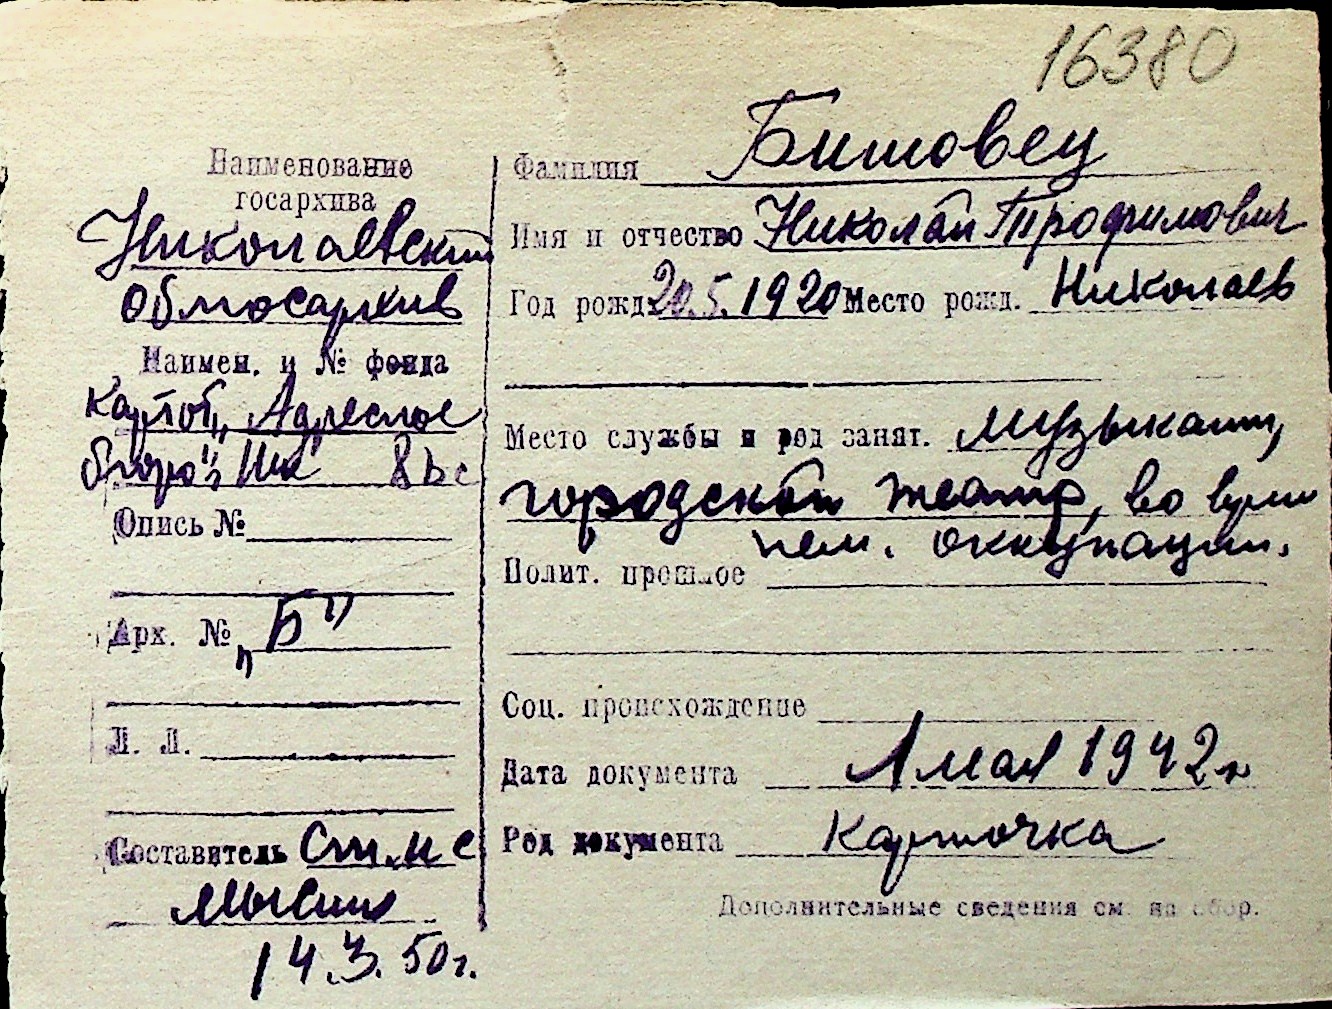 16380
Наименование
госархива
Николаевский
Облгосархив
Наимен. и № фонда
Картот. „Адресное
бюро"
Опись №
Арх. № „Б"
Л. Л.
Составитель
14.3.50г.
Фамилия Битовец
Имя и отчество Николай Трофимович
Год рожд. 20.5.1920 Место рожд. Николаев
Место службы и род занят. музыкант,
городской театр, во время
нем. оккупации.
Полит. прошлое
Соц. происхождение
Дата документа 1 мая 1942г
Род документа Карточка
Дополнительные сведения см. на обор.